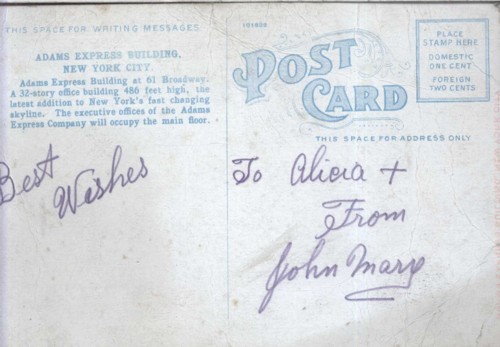 THIS SPACE FOR WRITING MESSAGES.
ADAMS EXPRESS BUILDING,
NEW YORK CITY.
Adams Express Building at 61 Broadway.
A 32-story office building 486 feet high, the
latest addition to New York's fast changing
skyline. The executive offices of the Adams
Express Company will occupy the main floor.
Best
Wishes
101806
POST
CARD
THIS SPACE FOR ADDRESS ONLY
PLACE
STAMP HERE
DOMESTIC
ONE CENT
FOREIGN
TWO CENTS
To Alicia +
From
John Mary